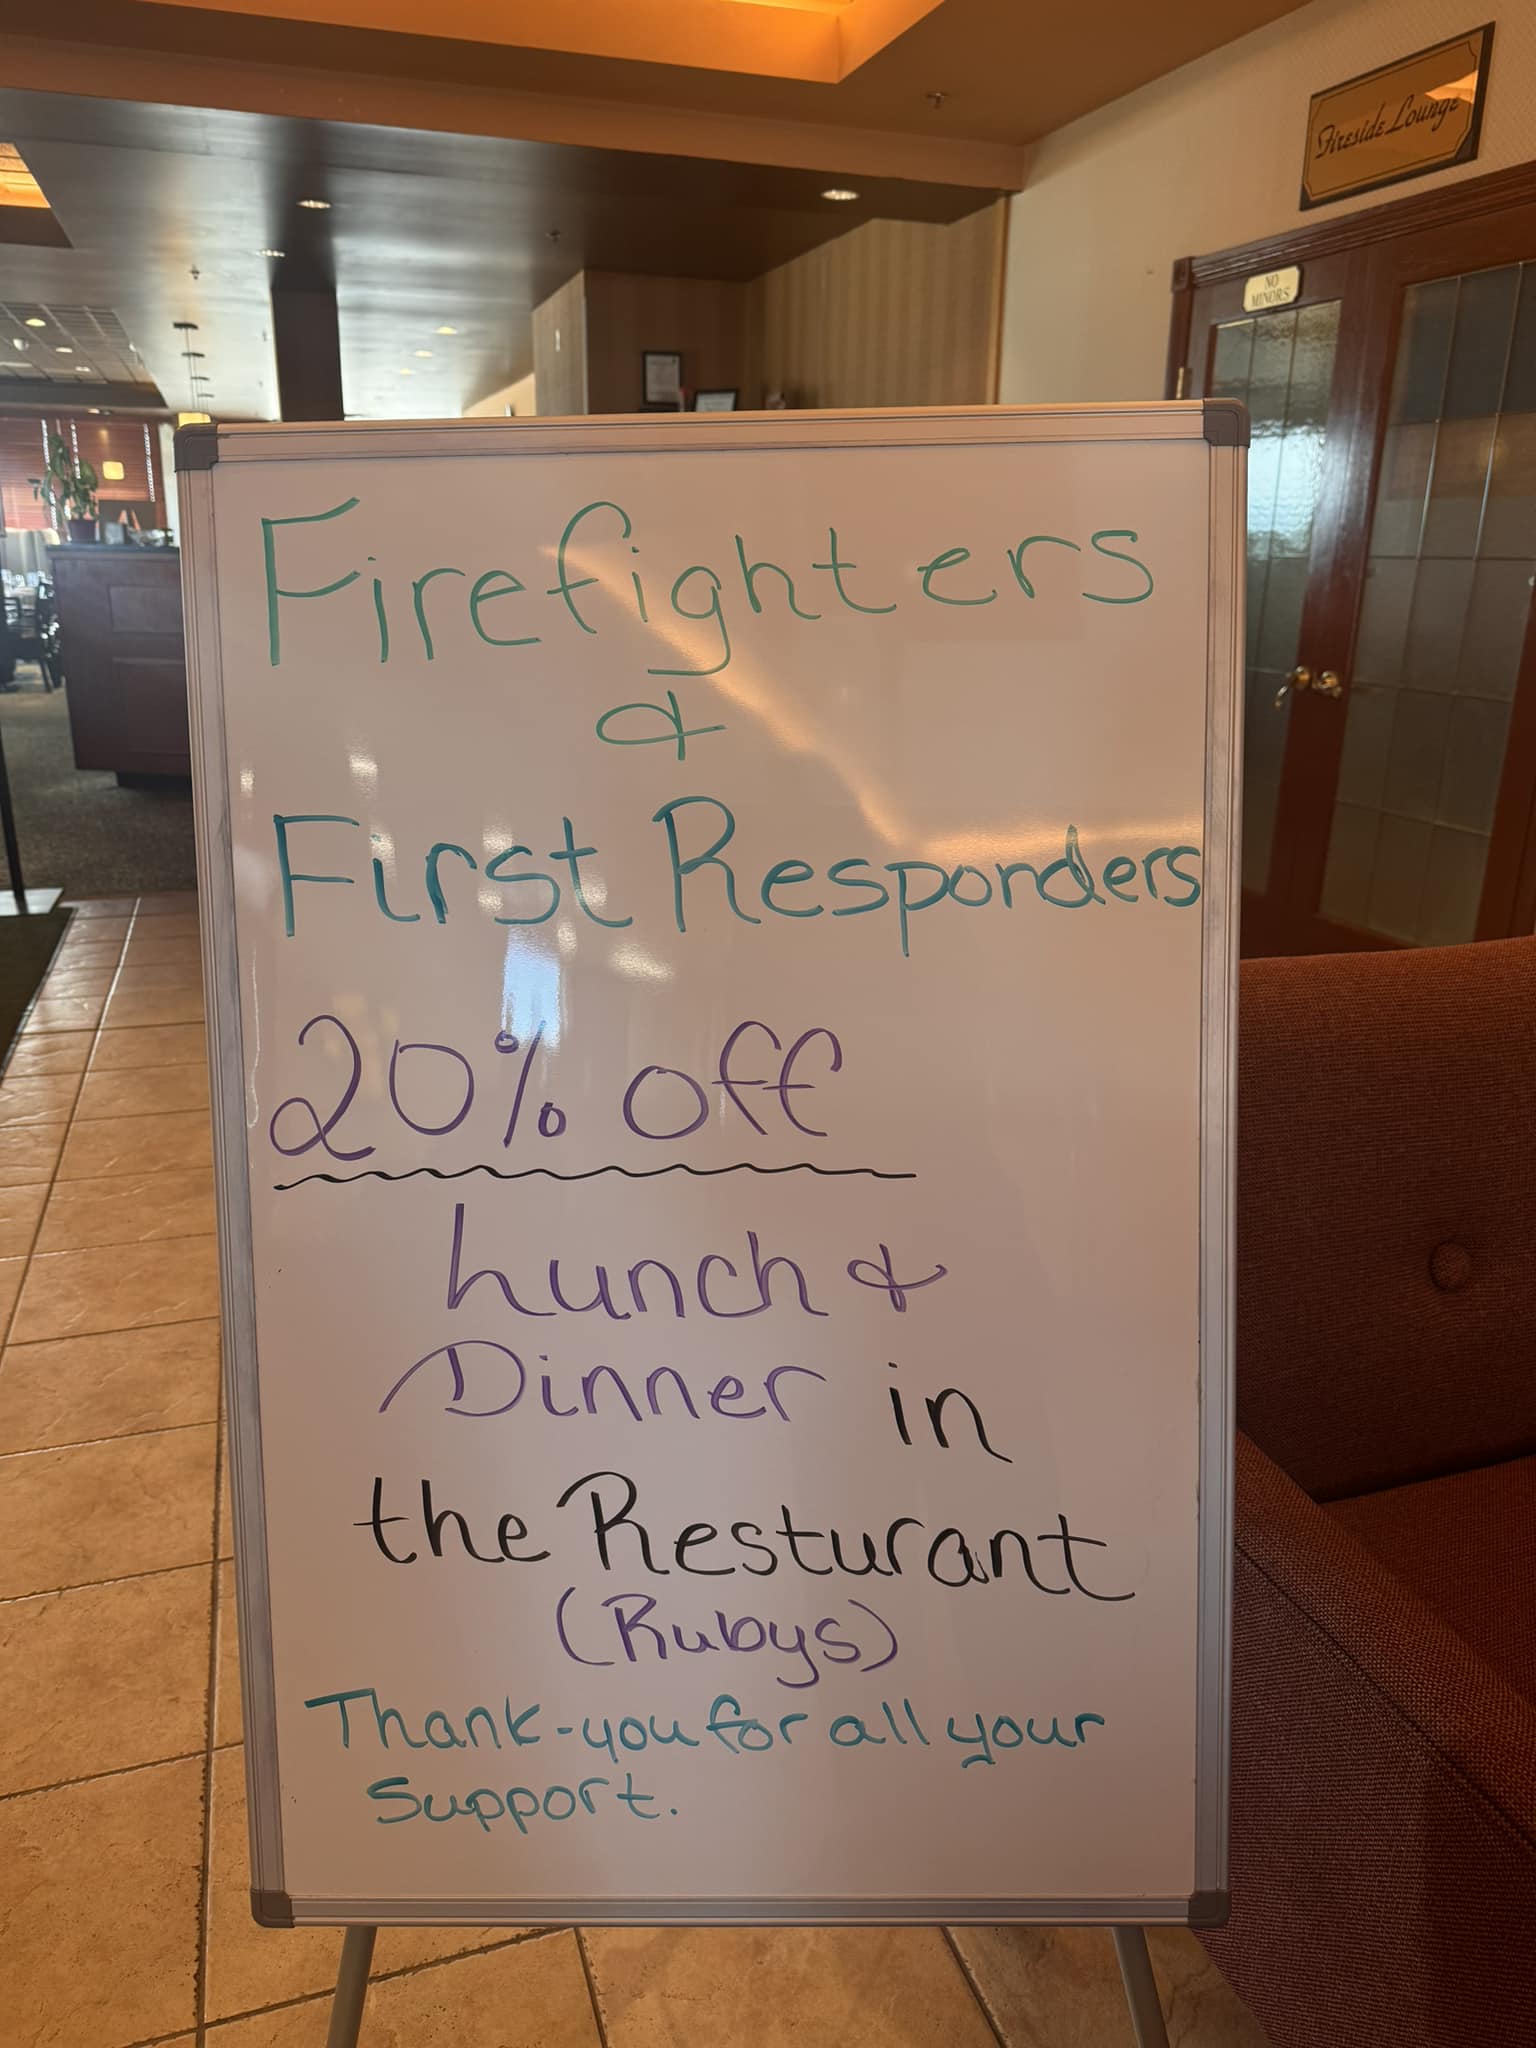 Fireside Lounge
NO
MINORS
Firefighters
&
First Responders
20% off
Lunch &
Dinner in
the Resturant
(Rubys)
Thank-you for all your
support.